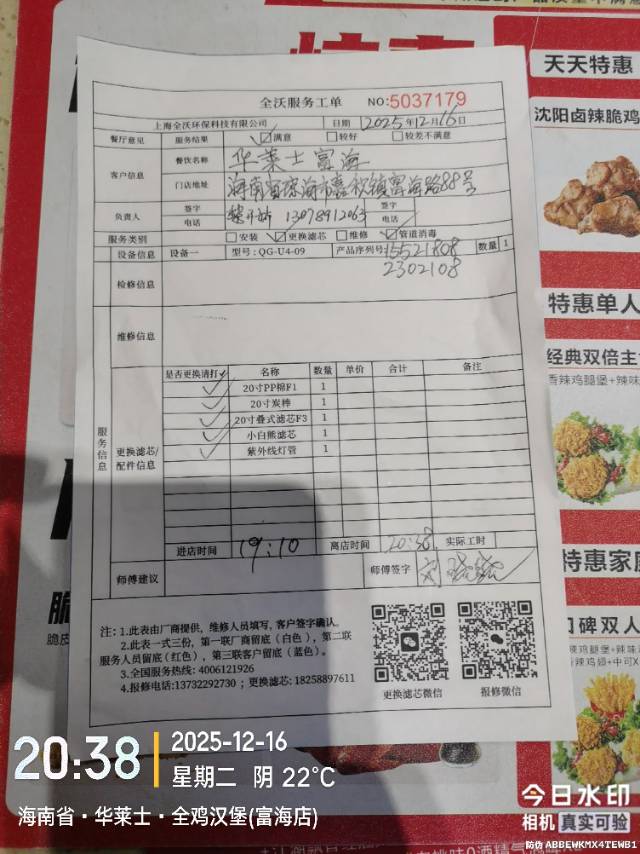 天天特惠
沈阳卤辣脆鸡
全沃服务工单 NO:5037179
上海全沃环保科技有限公司 日期 2025年12月16日
餐厅意见 服务结果 ☑满意 □较好 □较差不满意
客户信息 餐饮名称 华莱士富海
门店地址 海南省琼海市嘉积镇富海路88号
负责人 签字 电话 13078912063 签字 电话
服务类别 □安装 ☑更换滤芯 □维修 ☑管道消毒
设备信息 设备一 型号:QG-U4-09 产品序列号:15521808 数量 1
2302108
检修信息
服务信息
维修信息
更换滤芯/配件信息
是否更换请打✓ 名称 数量 单价 合计 备注
✓ 20寸PP棉F1 1
✓ 20寸炭棒 1
✓ 20寸叠式滤芯F3 1
✓ 小白熊滤芯 1
✓ 紫外线灯管 1
进店时间 19:10 离店时间 20:38 实际工时
师傅建议 师傅签字
注:1.此表由厂商提供,维修人员填写,客户签字确认。
2.此表一式三份,第一联厂商留底(白色),第二联
服务人员留底(红色),第三联客户留底(蓝色)。
3.全国服务热线:4006121926
4.报修电话:13732292730;更换滤芯:18258897611
更换滤芯微信 报修微信
特惠单人
经典双倍主
香辣鸡腿堡+辣味
特惠家庭
口碑双人
20:38
2025-12-16
星期二 阴 22°C
海南省·华莱士·全鸡汉堡(富海店)
今日水印
相机 真实可验
防伪 ABBEWKMX4TEWB1